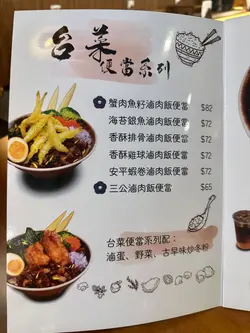 台菜
便當系列
蟹肉魚籽滷肉飯便當 $82
海苔銀魚滷肉飯便當 $72
香酥排骨滷肉飯便當 $72
香酥雞球滷肉飯便當 $72
安平蝦卷滷肉飯便當 $72
三公滷肉飯便當 $65
台菜便當系列配：
滷蛋、野菜、古早味炒冬粉